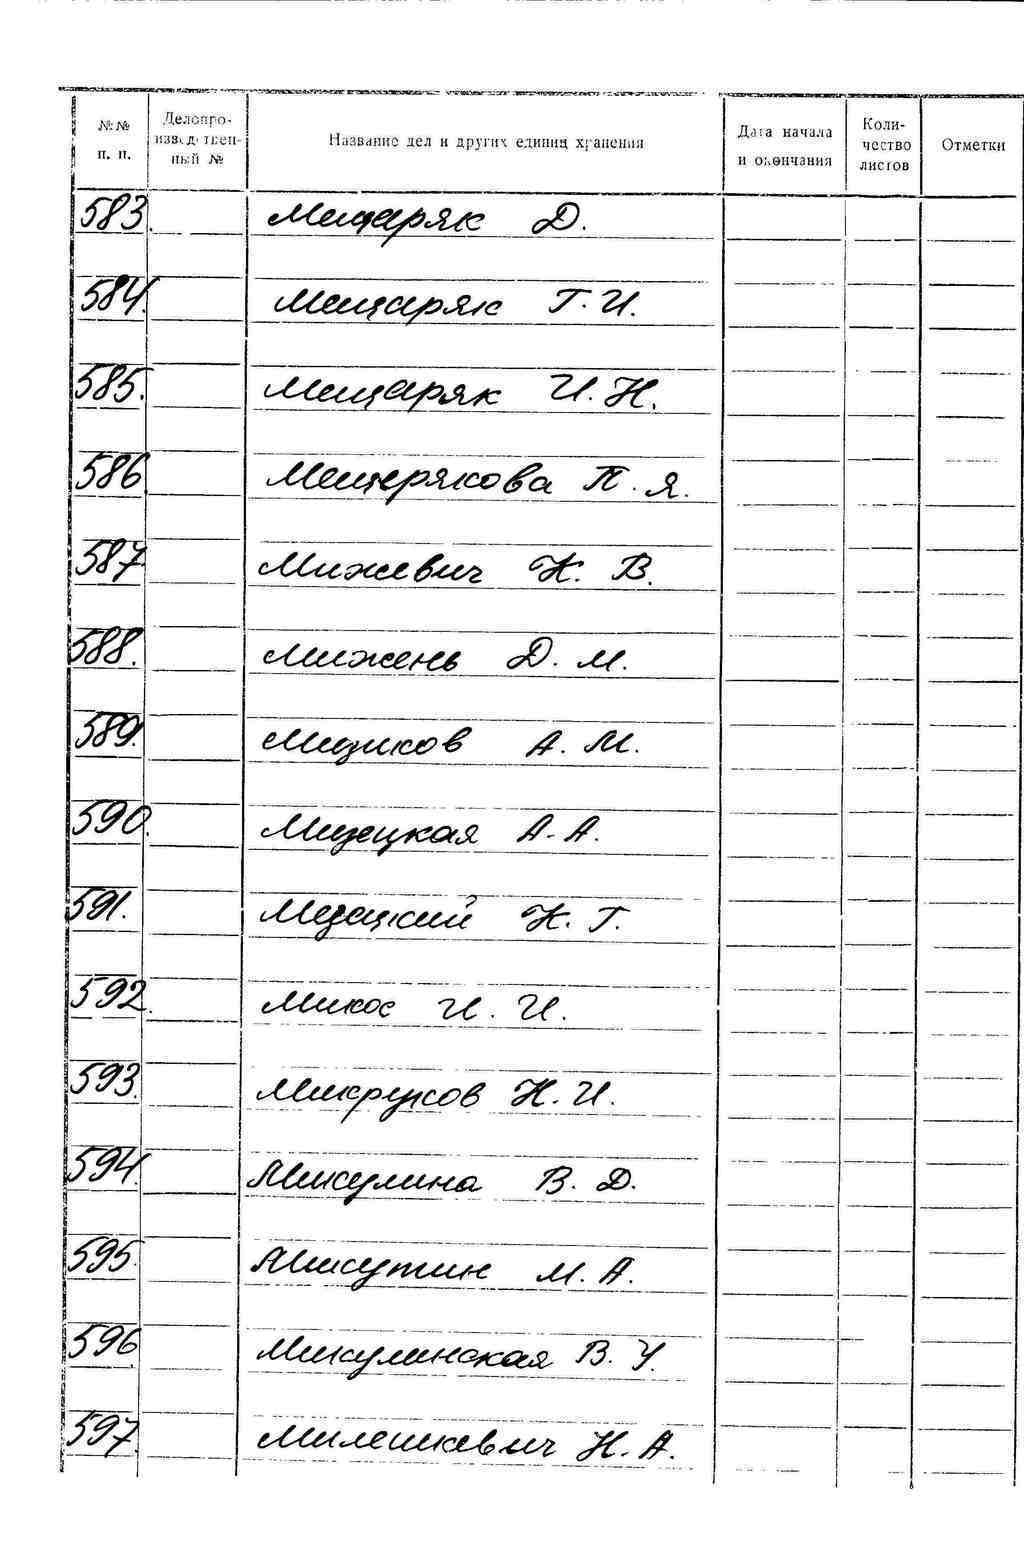 №№ п. п. Делопроизводственный № Название дел и других единиц хранения Дата начала и окончания Количество листов Отметки
583. Мещаряк Д.
584. Мещаряк Г. И.
585. Мещаряк И. Н.
586. Мещерякова П. Я.
587. Мижевич К. В.
588. Мижень Д. М.
589. Мизиков А. М.
590. Мизецкая А. А.
591. К. Г.
592. Микос И. И.
593. Н. И.
594. Микулина В. Д.
595. Микутин М. А.
596. Микулинская В. У.
597. Милешкевич Н. А.